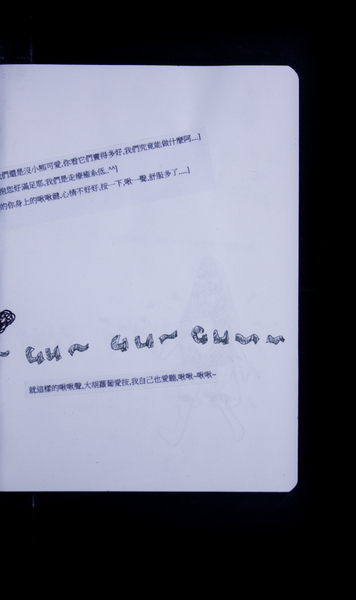 們還是沒小熊可愛,你看它們賣得多好,我們究竟能做什麼阿...]
您好滿足耶,我們是走療癒系低..^^]
的你身上的啾啾聽,心情不好好,按一下,啾一聲,舒服多了.....]
~ GU~ GU~ GU~~
就這樣的啾啾聲,大胡蘿蔔愛按,我自己也愛聽,啾啾~啾啾~